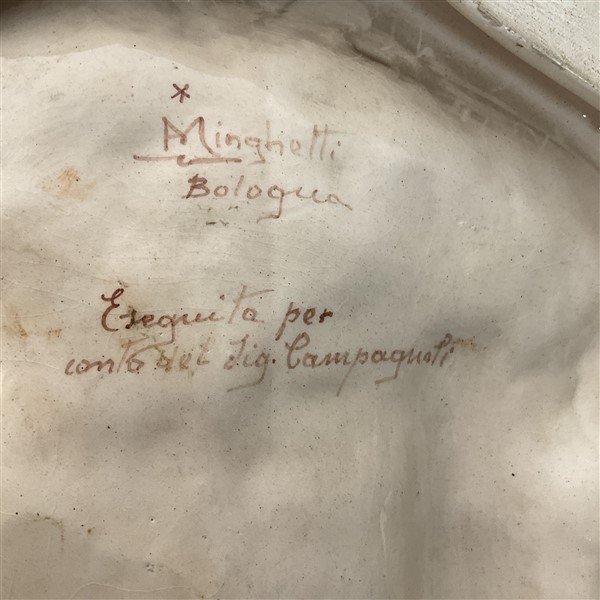 *
Minghetti
Bologna
Eseguita per
conto del Sig. Campagnoli